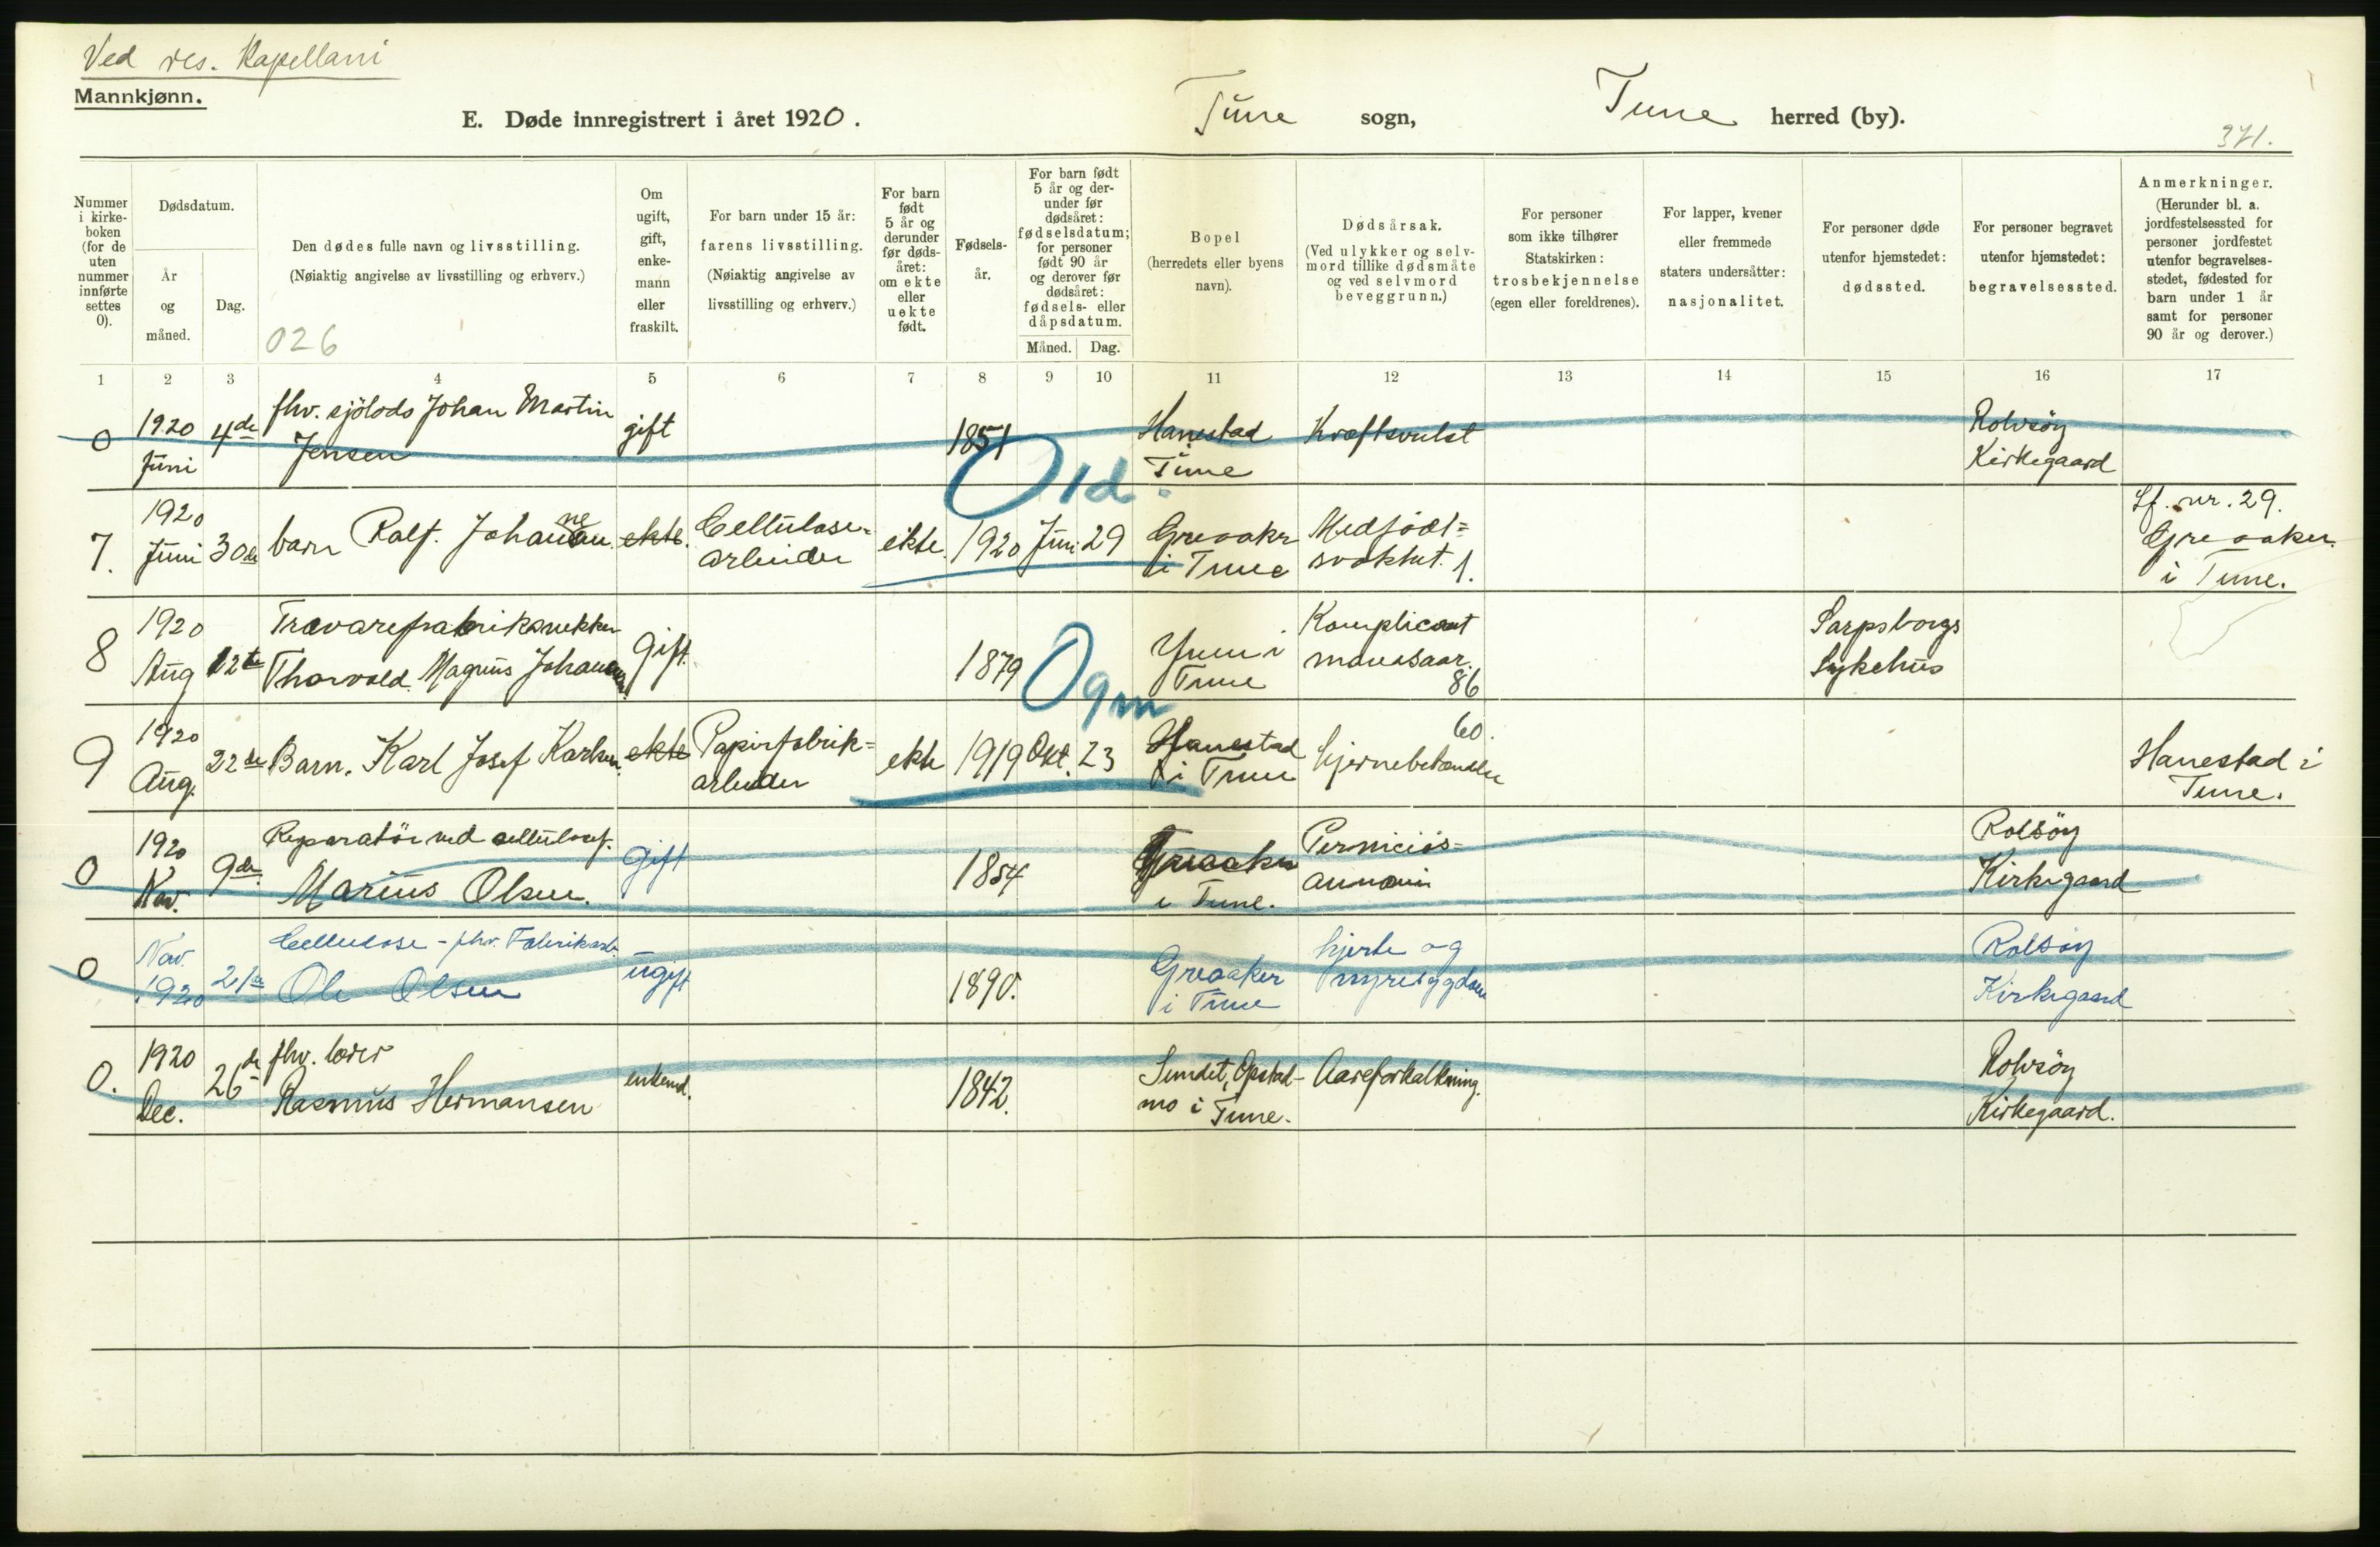 Ved res. Kapellani
Mannkjønn.
E. Døde innregistrert i året 1920. Tune sogn, Tune herred (by).
371.
Nummer i kirke- boken (for de uten nummer innførte settes 0).
Dødsdatum.
År og måned.
Dag.
Den dødes fulle navn og livsstilling.
(Nøiaktig angivelse av livsstilling og erhverv.)
026
Om ugift, gift, enke- mann eller fraskilt.
For barn under 15 år:
farens livsstilling.
(Nøiaktig angivelse av livsstilling og erhverv.)
For barn født 5 år og derunder før døds- året: om ekte eller uekte født.
Fødsels- år.
For barn født 5 år og der- under før dødsåret: fødselsdatum; for personer født 90 år og derover før dødsåret: fødsels- eller dåpsdatum.
Måned. Dag.
Bopel
(herredets eller byens navn).
Dødsårsak.
(Ved ulykker og selv- mord tillike dødsmåte og ved selvmord beveggrunn.)
For personer som ikke tilhører Statskirken: trosbekjennelse (egen eller foreldrenes).
For lapper, kvener eller fremmede staters undersåtter: nasjonalitet.
For personer døde utenfor hjemstedet: dødssted.
For personer begravet utenfor hjemstedet: begravelsessted.
Anmerkninger.
(Herunder bl. a. jordfestelsessted for personer jordfestet utenfor begravelses- stedet, fødested for barn under 1 år samt for personer 90 år og derover.)
1 2 3 4 5 6 7 8 9 10 11 12 13 14 15 16 17
0 1920 Juni 4de fhv. sjölods Johan Martin Jensen gift 1851 Hanestad Tune Kræftsvulst Rolvsöy Kirkegaard
7. 1920 Juni 30de barn Ralf. ekte. Cellulose= arbeider ekte. 1920 Juni 29 Greaaker i Tune Medfödt= svakhet. 1. Lf. nr. 29. Greaaker i Tune.
8 1920 Aug 12te Thorvald Magnus Johansen gift. 1879 i Tune 86 Sarpsborgs Sykehus
9 1920 Aug. 22de Barn. Karl Josef Karlsen. ekte Papirfabrik= arbeider ekte 1919 Okt. 23 Hanestad i Tune hjernebetændelse 60. Hanestad i Tune.
0 1920 Nov. 9de. Reparatör ved cellulosef. Marius Olsen. gift 1854 Greaaker i Tune. Perniciös= Rolsöy Kirkegaard
0 Nov. 1920 21de Cellulose - fhv. Fabrikarb. Ole Olsen ugift 1890. Greaaker i Tune hjerte og nyresygdom Rolsöy Kirkegaard
0. 1920 Dec. 26de fhv. lærer Rasmus Hermansen enkemd. 1842. Sundet, Opstad- mo i Tune. Aareforkalkning. Rolvsöy Kirkegaard.